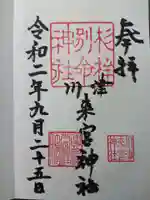 奉拝
杉桙
別命
神社
川津
来宮神社
令和二年九月二十五日